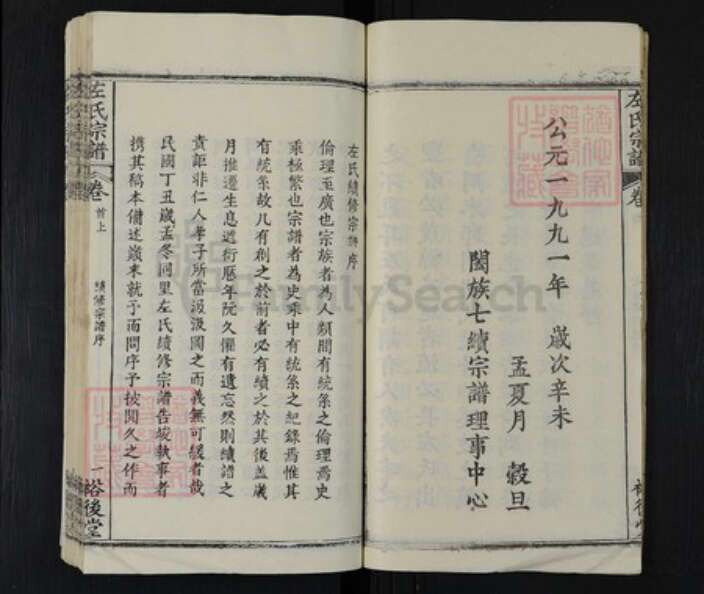 左氏宗譜
公元一九九一年 歲次辛未
孟夏月 穀旦
閤族七續宗譜理事中心
左氏續修宗譜序
倫理至廣也宗族者為人類間有統系之倫理焉史
乘極繁也宗譜者為史乘中有統系之紀錄焉惟其
有統系故凡有創之於前者必有續之於其後蓋歲
月推遷生息遞衍歷年既久懼有遺忘然則續譜之
責詎非仁人孝子所當汲汲圖之而義無可緩者哉
民國丁丑歲孟冬同里左氏續修宗譜告竣執事者
携其稿本備述巔末就予而問序予披閱久之作而
左氏宗譜
卷
首上
續修宗譜序
一
裕後堂
FamilySearch